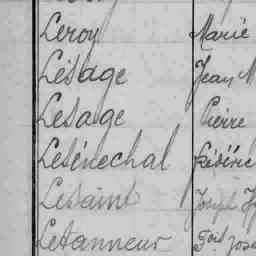 Leroy Marie
Lesage Jean M
Lesage Pierre
Lesénechal Frédéric
Lesaint Joseph
Letanneur